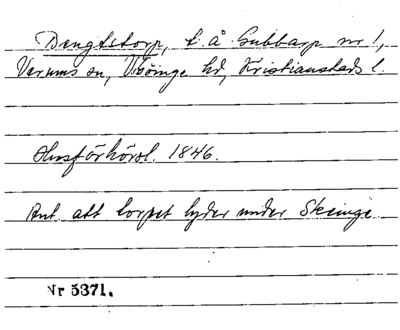 Bengtstorp, t. å Gubbarp nr 1,
Verums sn, V. Göinge hd, Kristianstads l.
Husförhörsl. 1846.
Ant. att torpet lyder under Skeinge
Nr 5371.